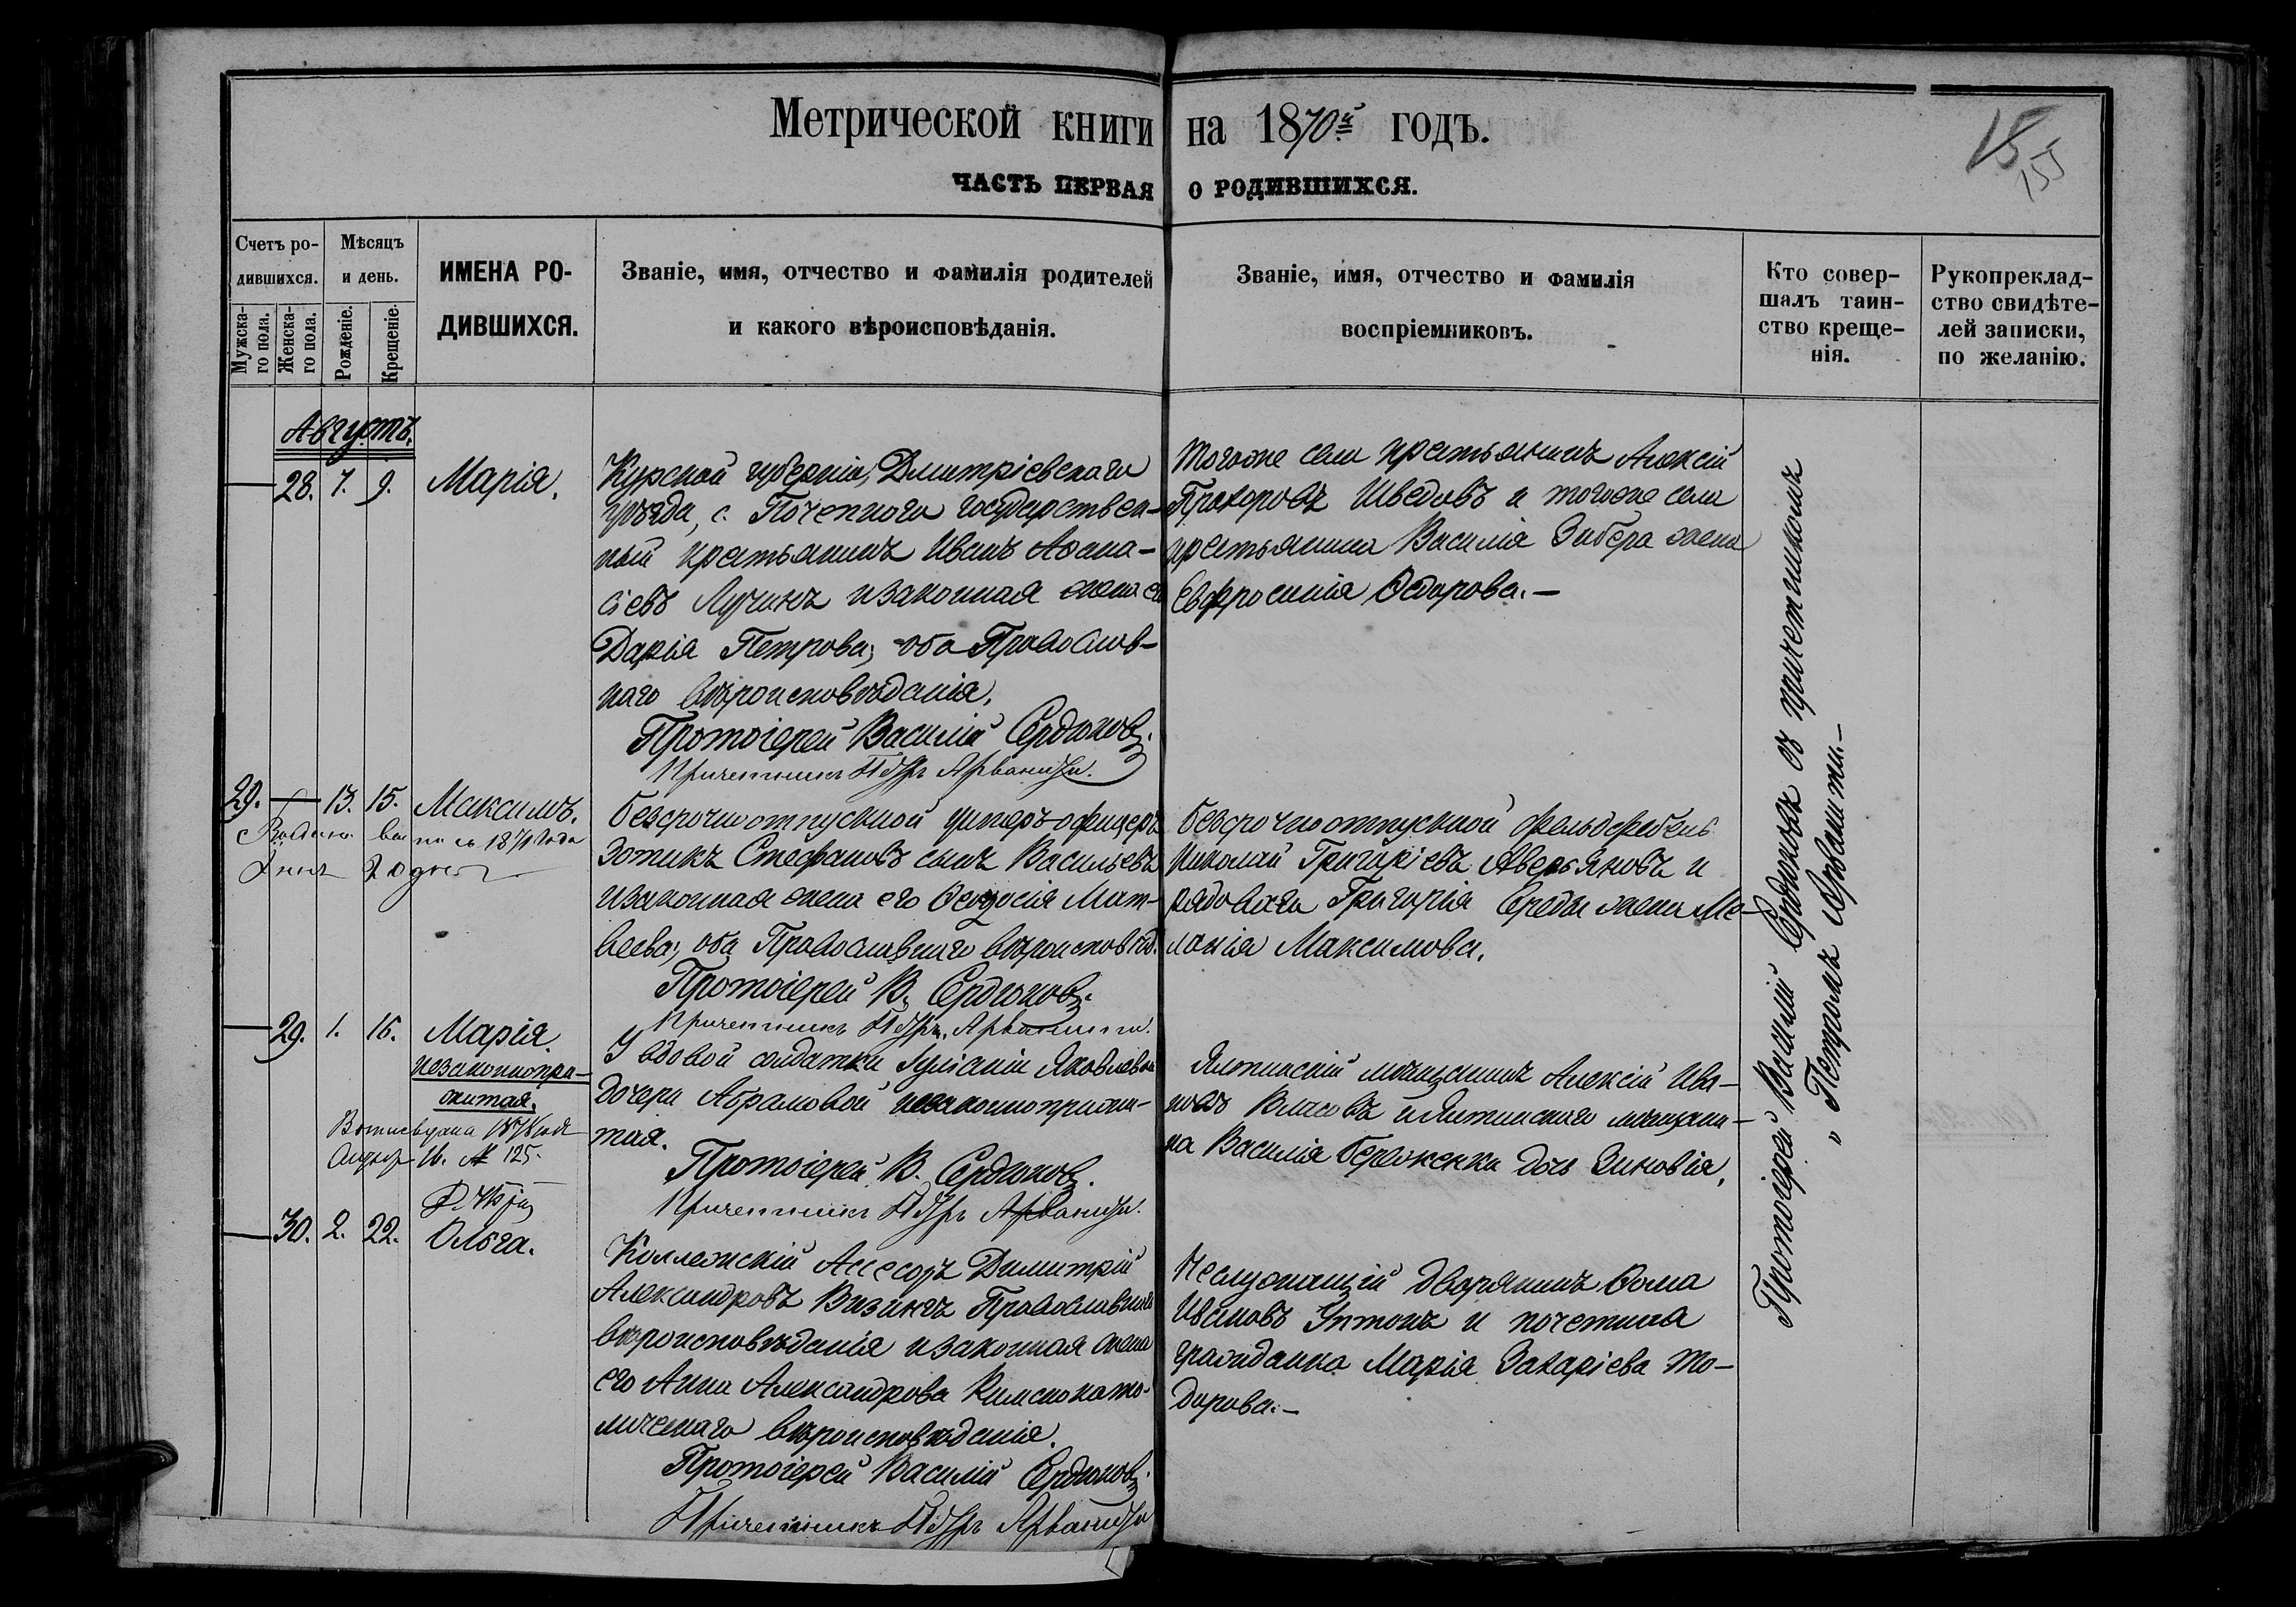 Метрической книги на 1870й годъ.
15
155
ЧАСТЬ ПЕРВАЯ О РОДИВШИХСЯ.
Счетъ ро-
дившихся.
Мужска-
го пола.
Женска-
го пола.
Мѣсяцъ
и день.
Рожденіе.
Крещеніе.
ИМЕНА РО-
ДИВШИХСЯ.
Званіе, имя, отчество и фамилія родителей
и какого вѣроисповѣданія.
Званіе, имя, отчество и фамилія
воспріемниковъ.
Кто совер-
шалъ таин-
ство креще-
нія.
Рукопреклад-
ство свидѣте-
лей записки,
по желанію.
Августъ.
28. 7. 9. Марія.
Курской губерніи, Дмитріевскаго
уѣзда, с. Поченнаго государствен-
ный крестьянинъ Иванъ Аѳана-
сіевъ Лучинъ и законная жена его
Дарія Петрова; оба Православ-
наго вѣроисповѣданія.
Протоіерей Василій Сердюковъ.
Причетникъ Петръ Арванити.
Тогоже села крестьянинъ Алексій
Прохоровъ Шведовъ и тогоже села
крестьянина Василія Зибера жена
Евфросинія Ѳедорова.—
29. 13. 15. Максимъ.
1871 года
20 дня
Безсрочноотпускной унтеръ-офицеръ
Зотикъ Стефановъ сынъ Васильевъ
и законная жена его Ѳеодосія Мат-
веева; оба Православнаго вѣроисповѣд.
Протоіерей В. Сердюковъ.
Причетникъ Петръ Арванити.
Безсрочноотпускной фельдфебель
Николай Григоріевъ Аверьяновъ и
рядоваго Григорія Середы жена Ме-
ланія Максимова.
29. 1. 16. Марія.
незаконнопри-
житая.
16. № 125.
У вдовой солдатки Іуліаніи Яковлевой
дочери Абрамовой незаконноприжи-
тая.
Протоіерей В. Сердюковъ.
Причетникъ Петръ Арванити.
Ялтинскій мѣщанинъ Алексій Ива-
новъ Власовъ и Ялтинскаго мѣщани-
на Василія Береженки дочь Зиновія.
30. 2. 22. Ольга.
Коллежскій Ассесоръ Димитрій
Александровъ Визингъ Православнаго
вѣроисповѣданія и законная жена
его Анна Александрова Римскокато-
лическаго вѣроисповѣданія.
Протоіерей Василій Сердюковъ.
Причетникъ Петръ Арванити
Неслужащій дворянинъ Ѳома
Ивановъ Уптонъ и почетная
гражданка Марія Захаріева То-
дорова.—
Протоіерей Василій Сердюковъ съ причетникомъ
" Петромъ Арванити.—